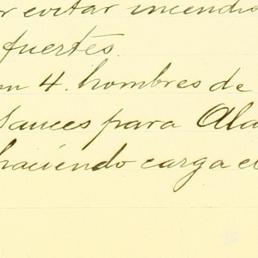 evitar incendi
fuertes.
n 4. hombres de
Sauces para Ala
haciendo carga e